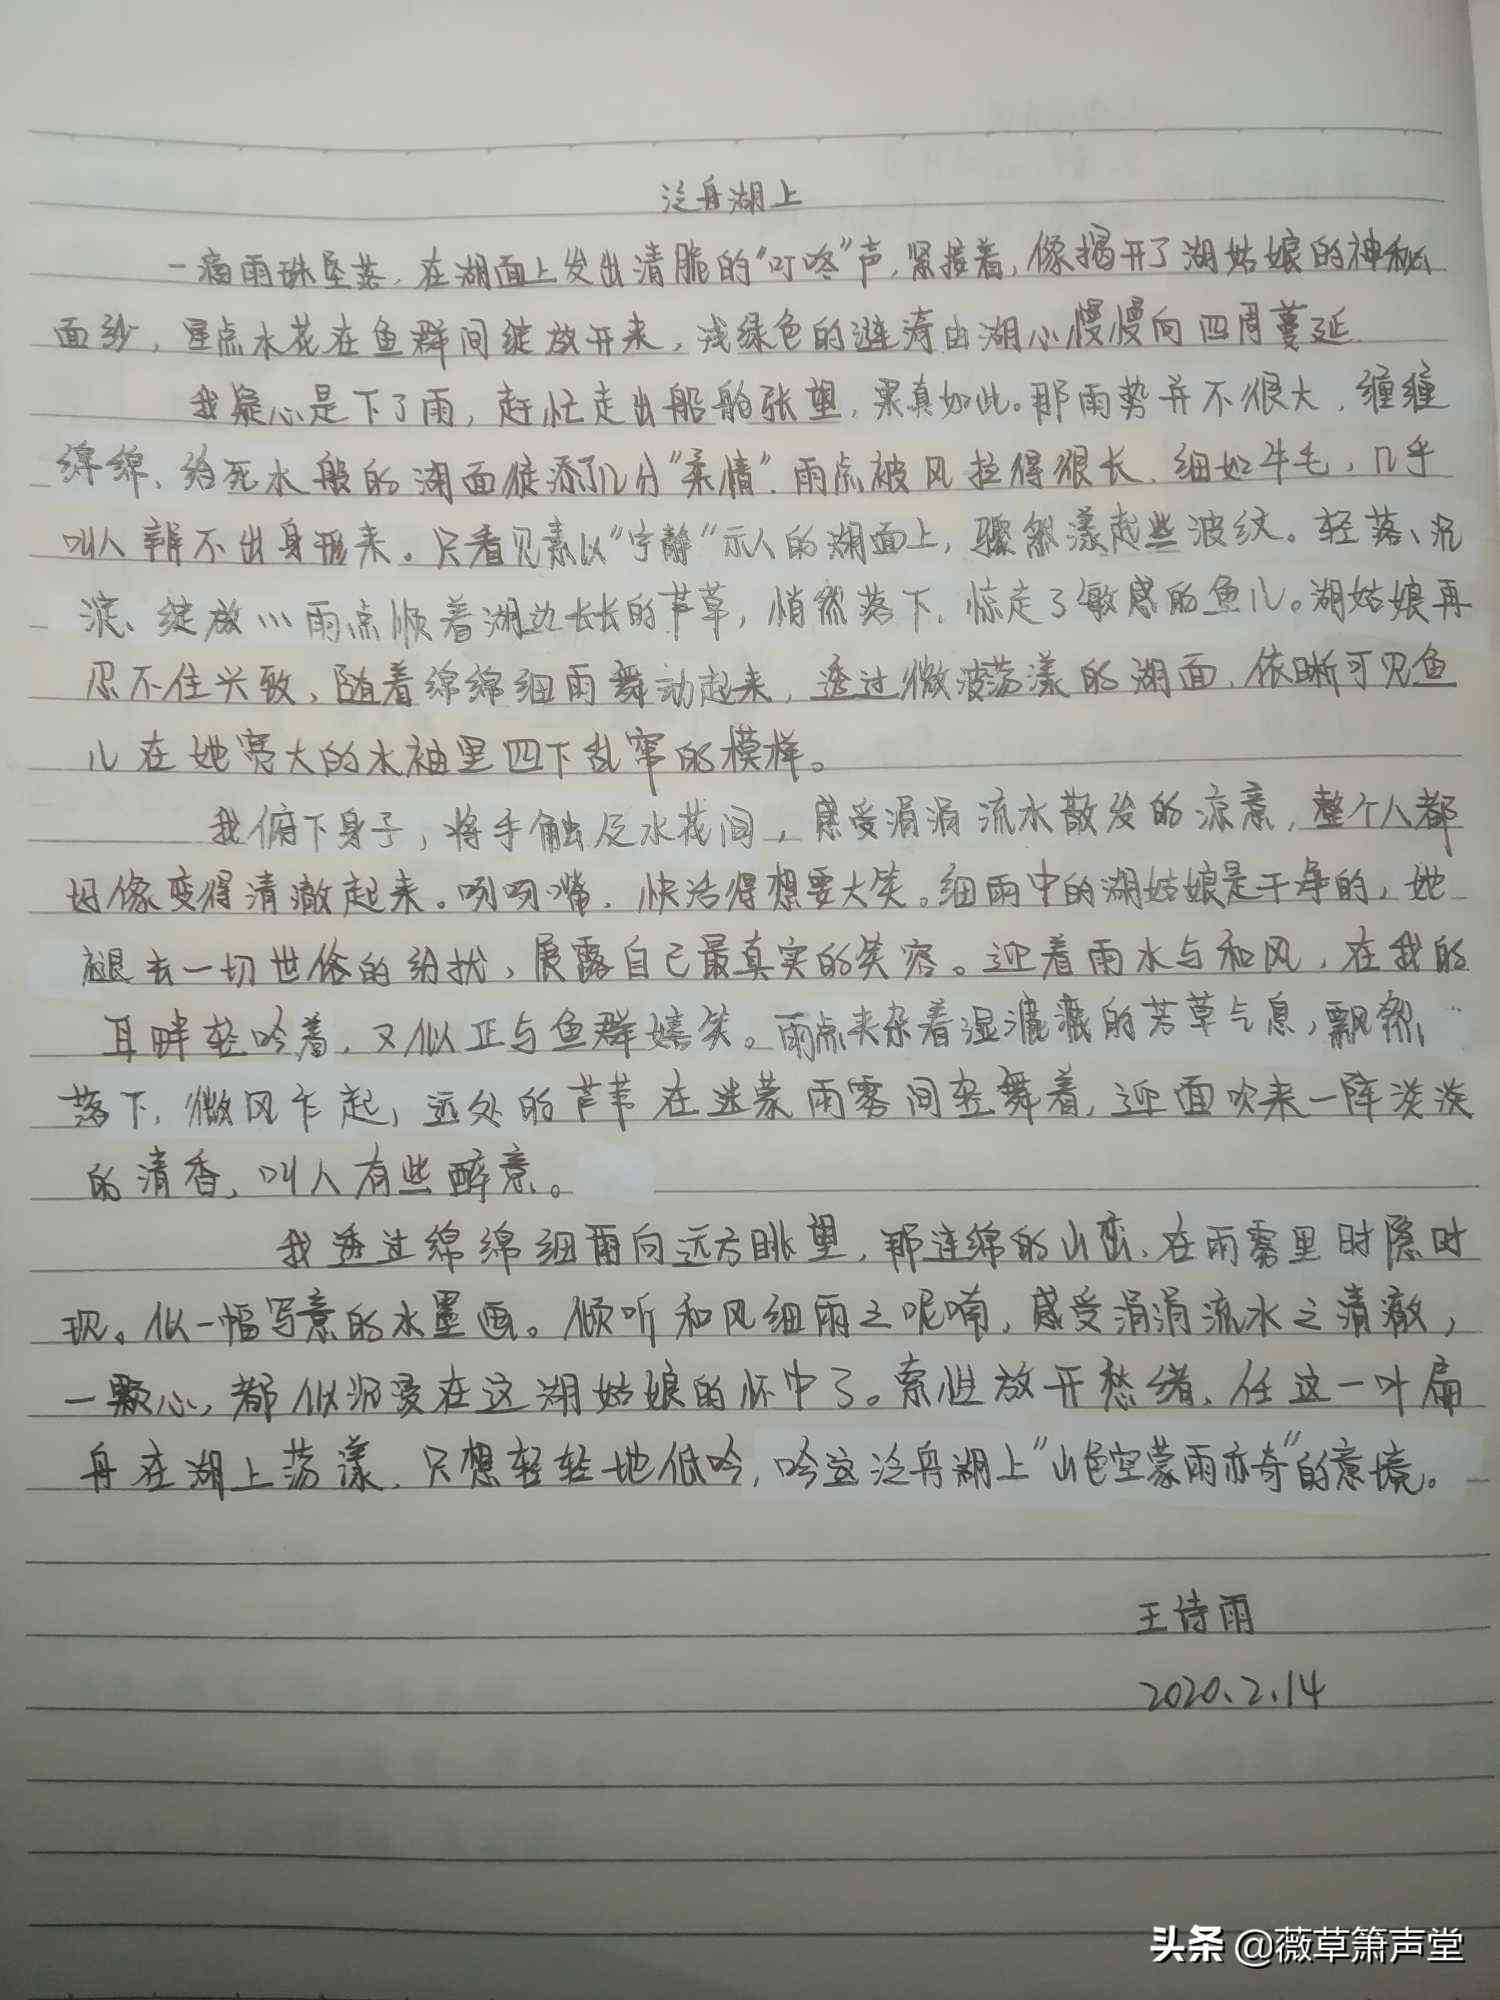 泛舟湖上
一滴雨珠坠落,在湖面上发出清脆的“叮咚”声,紧接着,像揭开了湖姑娘的神秘
面纱,星点水花在鱼群间绽放开来,浅绿色的涟漪由湖心慢慢向四周蔓延
我疑心是下了雨,赶忙走出船舱张望,果真如此。那雨势并不很大,缠缠
绵绵、给死水般的湖面徒添了几分“柔情”.雨点被风拉得很长、细如牛毛,几乎
叫人辨不出身形来。只看见素以“宁静”示人的湖面上,骤然漾起些波纹。轻落、沉
淀、绽放…雨点顺着湖边长长的芦草,悄然落下,惊走了敏感的鱼儿。湖姑娘再
忍不住兴致,随着绵绵细雨舞动起来,透过微波荡漾的湖面,依晰可见鱼
儿在她宽大的水袖里四下乱窜的模样。
我俯下身子,将手触及水花间,感受涓涓流水散发的凉意,整个人都
好像变得清澈起来。咧咧嘴,快活得想要大笑。细雨中的湖姑娘是干净的,她
褪去一切世俗的纷扰,展露自己最真实的笑容。迎着雨水与和风,在我的
耳畔轻吟着,又似正与鱼群嬉笑。雨点夹杂着湿漉漉的芳草气息,飘然
落下,微风乍起,远处的芦苇在迷蒙雨雾间轻舞着,迎面吹来一阵淡淡
的清香,叫人有些醉意。
我透过绵绵细雨向远方眺望,那连绵的山峦,在雨雾里时隐时
现。似一幅写意的水墨画。倾听和风细雨之呢喃,感受涓涓流水之清澈,
一颗心,都似沉浸在这湖姑娘的怀中了。索性放开愁绪,任这一叶扁
舟在湖上荡漾,只想轻轻地低吟,吟这泛舟湖上“山色空蒙雨亦奇”的意境。
王诗雨
2020.2.14
头条 @薇草箫声堂